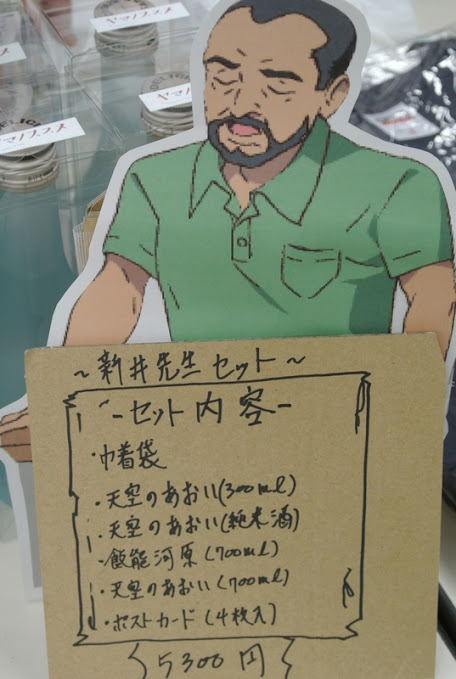 ヤマノススメ
ヤマノススメ
~新井先生セット~
-セット内容-
・巾着袋
・天空のあおい(300ml)
・天空のあおい(純米酒)
・飯能河原(700ml)
・天空のあおい(700ml)
・ポストカード(4枚入)
5300円